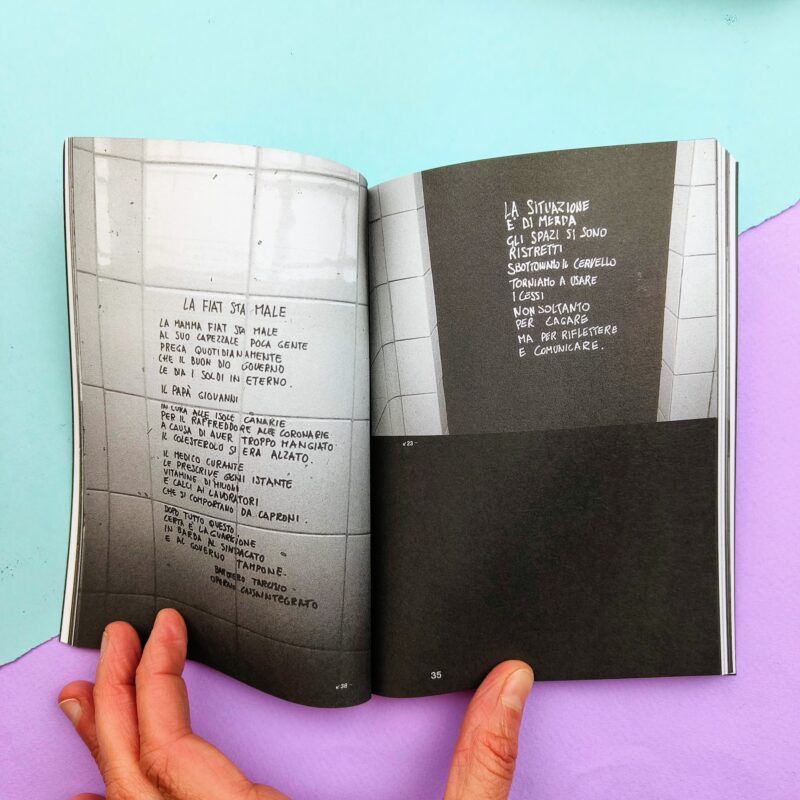 LA FIAT STA MALE
LA MAMMA FIAT STA MALE
AL SUO CAPEZZALE POCA GENTE
PREGA QUOTIDIANAMENTE
CHE IL BUON DIO GOVERNO
LE DIA I SOLDI IN ETERNO.
IL PAPÀ GIOVANNI
IN CURA ALLE ISOLE CANARIE
PER IL RAFFREDDORE ALLE CORONARIE
A CAUSA DI AVER TROPPO MANGIATO
IL COLESTEROLO SI ERA ALZATO.
IL MEDICO CURANTE
LE PRESCRIVE OGNI ISTANTE
VITAMINE DI MILIONI
E CALCI AI LAVORATORI
CHE SI COMPORTANO DA CAPRONI.
DOPO TUTTO QUESTO
CERTA È LA GUARIGIONE
IN BARBA AL SINDACATO
E AL GOVERNO TAMPONE.
TARCISIO
OPERAIO CASSAINTEGRATO
n°38
LA SITUAZIONE
E' DI MERDA
GLI SPAZI SI SONO
RISTRETTI
SBOTTONIAMO IL CERVELLO
TORNIAMO A USARE
I CESSI
NON SOLTANTO
PER CAGARE
MA PER RIFLETTERE
E COMUNICARE.
n°23
35